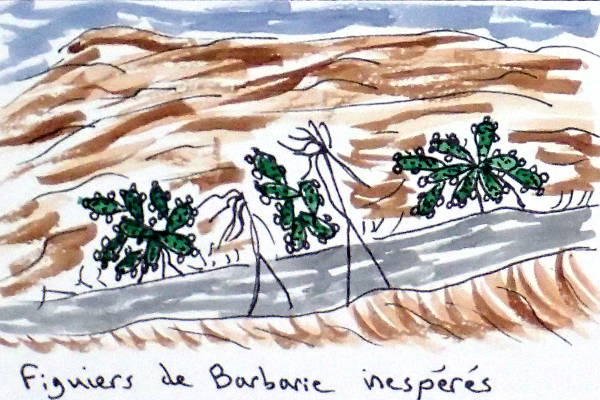 Figuiers de Barbarie inespérés